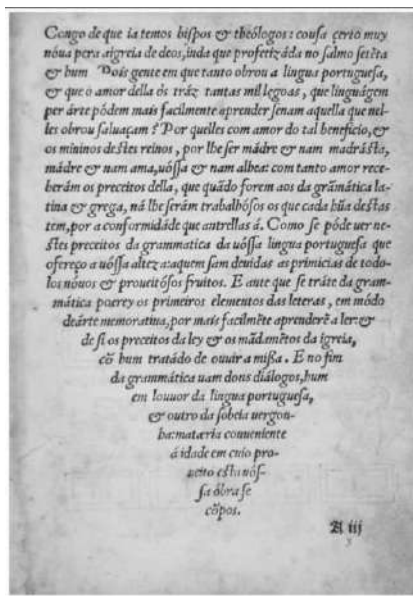 Congo de que ia temos bispos & theólogos: cousa çerto muy
nóua pera aigreia de deos, inda que profetizáda no salmo setẽta
& hum Pois gente em que tanto obrou a lingua portuguesa,
& que o amor della ós tráz tantas mil legoas, que linguágem
per árte pódem mais facilmente aprender senam aquella que nel-
les obrou saluaçam? Por quelles com amor do tal benefiçio, &
os mininos destes reinos, por lhe ser mádre & nam madrásta,
mádre & nam ama, uóssa & nam alhea: com tanto amor rece-
berám os preceitos della, que quãdo forem aos da grãmática la-
tina & grega, nã lhe serám trabalhósos os que cada hũa destas
tem, por a conformidáde que antrellas á. Como se póde uer ne-
stes preceitos da grammatica da uóssa lingua portuguesa que
ofereço a uóssa alteza: aquem sam deuidas as primiçias de todo-
los nóuos & proueitósos fruitos. E ante que se tráte da gram-
mática poerey os primeiros elementos das leteras, em módo
deárte memoratiua, por mais facilmẽte aprenderẽ a ler: &
de si os preceitos da ley & os mãdamẽtos da igreia,
cõ hum tratádo de ouuir a missa. E no fim
da grammática uam dous diálogos, hum
em louuor da lingua portuguesa,
& outro da sobeia uergon-
ha: materia conueniente
á idade em cuio pro-
ueito esta uós-
sa óbra se
cõpos.
A iij